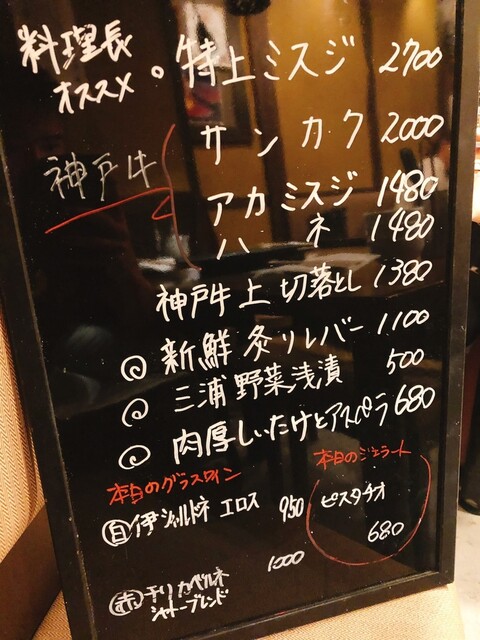 料理長
オススメ
。特上ミスジ 2700
神戸牛
サンカク 2000
アカミスジ 1480
ハネ 1480
神戸牛上切落とし 1380
◎新鮮炙りレバー 1100
◎三浦野菜浅漬 500
◎肉厚しいたけとアスパラ 680
本日のグラスワイン
白伊シャルドネ エロス 950
赤チリ カベルネ 1000
シャトーブレンド
本日のジェラート
ピスタチオ
680